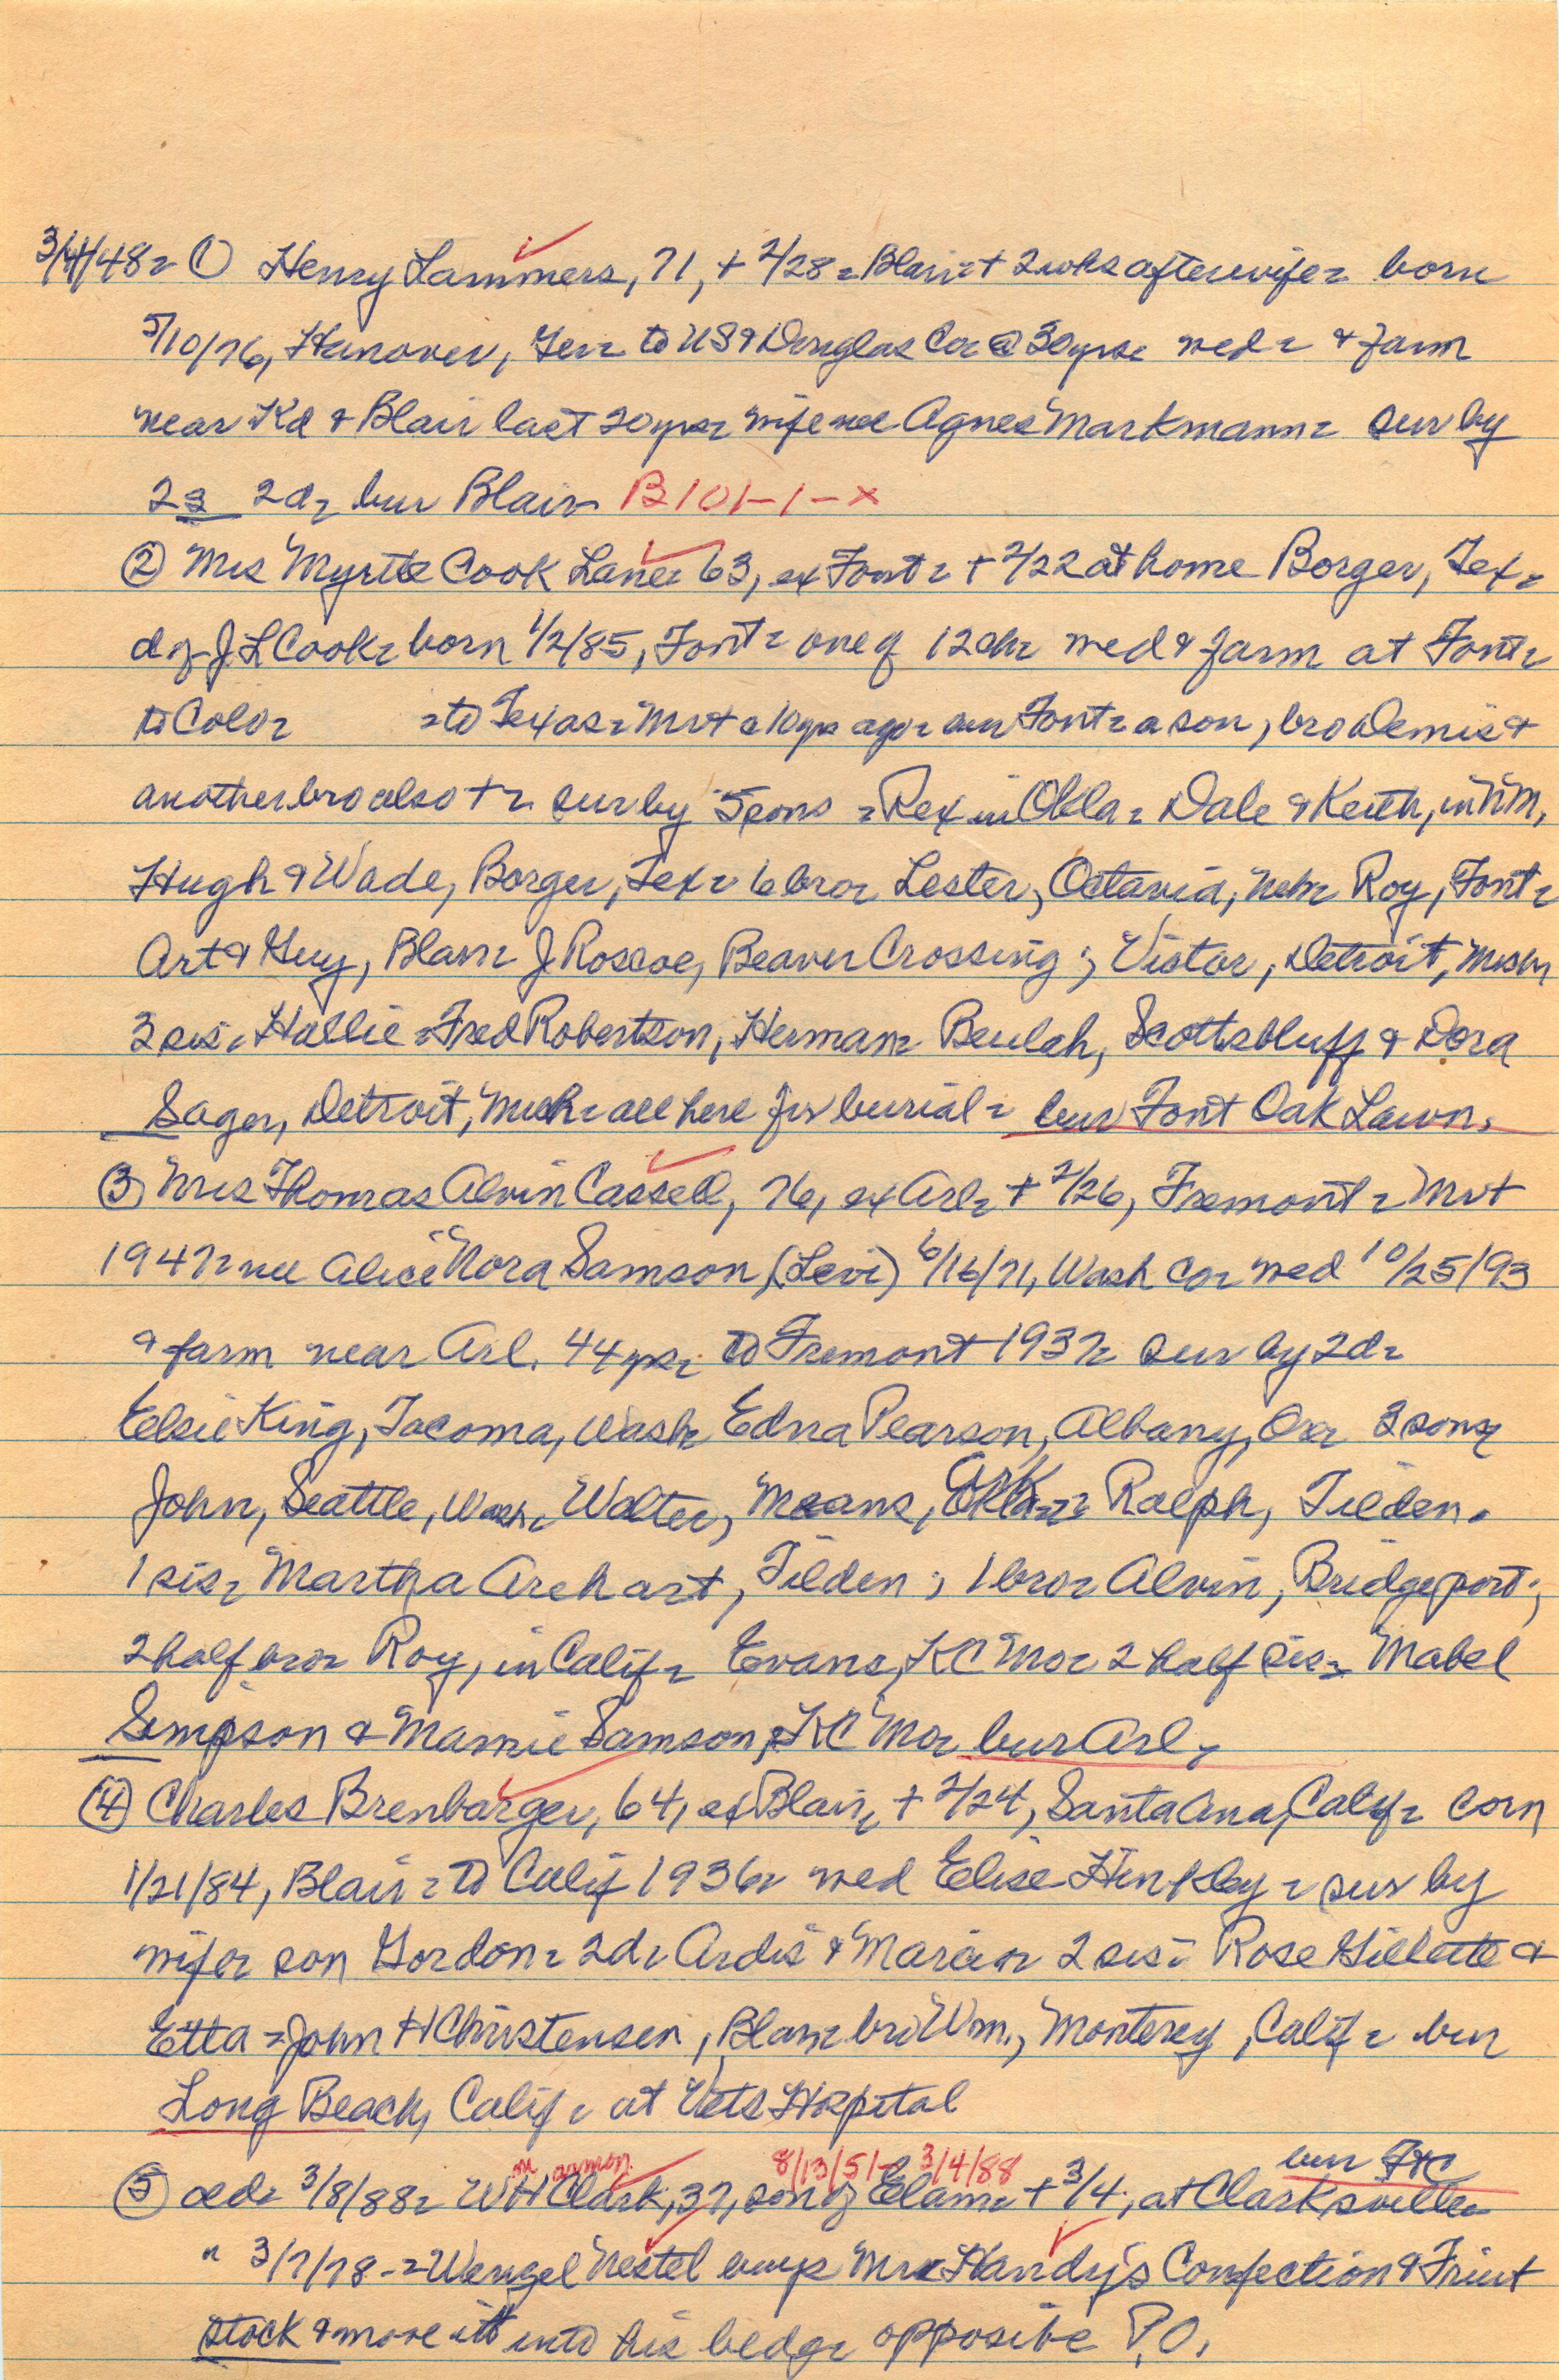 3/4/48- ① Henry Lammers, 71, + 2/28- Blair- + 2 wks after wife- born
5/10/76, Hanover, Ger- to US & Douglas Co- @ 30 yrs- wed- & farm
near Kd & Blair last 20 yrs- wife nee Agnes Markmann- sur by
2s 2d- bur Blair- B101-1-x
② Mrs Myrtle Cook Lane- 63, ex Font- + 2/22 at home Borger, Tex-
d of J L Cook- born 1/2/85, Font- one of 12 ch- wed & farm at Font-
to Colo- -to Texas- Mr + 10 yrs ago- bur Font- a son, bro Demis &
another bro also +- sur by 5 sons - Rex in Okla- Dale & Keith, in NM,
Hugh & Wade, Borger, Tex- 6 bro- Lester, Octavia, Neb- Roy, Font-
Art & Guy, Blair- J Roscoe, Beaver Crossing; Victor, Detroit, Mich-
3 sis- Hallie - Fred Robertson, Herman- Beulah, Scottsbluff & Dora
Sager, Detroit, Mich- all here for burial- bur Font Oak Lawn.
③ Mrs Thomas Alvin Cassell, 76, ex Arl- + 2/26, Fremont- Mr +
1947- nee Alice Nora Samson, (Levi) 6/16/71, Wash Co- wed 10/25/93
& farm near Arl. 44 yrs- to Fremont 1937- sur by 2d-
Elsie King, Tacoma, Wash- Edna Pearson, Albany, Ore- 3 sons
John, Seattle, Wash- Walter, Means, Ark- Ralph, Tilden.
1 sis- Martha Arehart, Tilden; 1 bro- Alvin, Bridgeport;
2 half bro- Roy, in Calif- Evans, KC Mo- 2 half sis- Mabel
Simpson & Mamie Samson, KC Mo- bur Arl-
④ Charles Brenbarger, 64, ex Blair, + 2/24, Santa Ana, Calif- born
1/21/84, Blair- to Calif 1936- wed Elise Hinkley- sur by
wife- son Gordon- 2d- Ardis & Marian- 2 sis- Rose Gillette &
Etta - John H Christensen, Blair- bro Wm., Monterey, Calif- bur
Long Beach, Calif- at Vets Hospital
m armon 8/13/51- 3/4/88 bur FtC
⑤ old- 3/8/88- W H Clark, 37, son of Elam- + 3/4, at Clarksville-
" 3/7/78- - Wenzel Nestel buys Mrs Handy's Confection & Fruit
stock & move it into his bldg- opposite P.O.